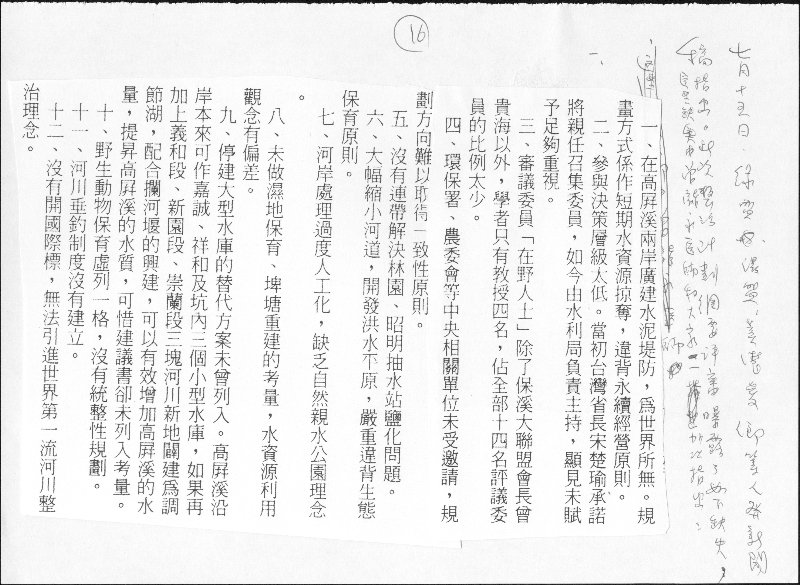 16
七月十五日
一、在高屏溪兩岸廣建水泥堤防，為世界所無。規
畫方式係作短期水資源掠奪，違背永續經營原則。
二、參與決策層級太低。當初台灣省長宋楚瑜承諾
將親任召集委員，如今由水利局負責主持，顯見未賦
予足夠重視。
三、審議委員「在野人士」除了保溪大聯盟會長曾
貴海以外，學者只有教授四名，佔全部十四名評議委
員的比例太少。
四、環保署、農委會等中央相關單位未受邀請，規
劃方向難以取得一致性原則。
五、沒有連帶解決林園、昭明抽水站鹽化問題。
六、大幅縮小河道，開發洪水平原，嚴重違背生態
保育原則。
七、河岸處理過度人工化，缺乏自然親水公園理念
。
八、未做濕地保育、埤塘重建的考量，水資源利用
觀念有偏差。
九、停建大型水庫的替代方案未曾列入。高屏溪沿
岸本來可作嘉誠、祥和及坑內三個小型水庫，如果再
加上義和段、新園段、崇蘭段三塊河川新地闢建為調
節湖，配合攔河堰的興建，可以有效增加高屏溪的水
量，提昇高屏溪的水質，可惜建議書卻未列入考量。
十、野生動物保育虛列一格，沒有統整性規劃。
十一、河川垂釣制度沒有建立。
十二、沒有開國際標，無法引進世界第一流河川整
治理念。